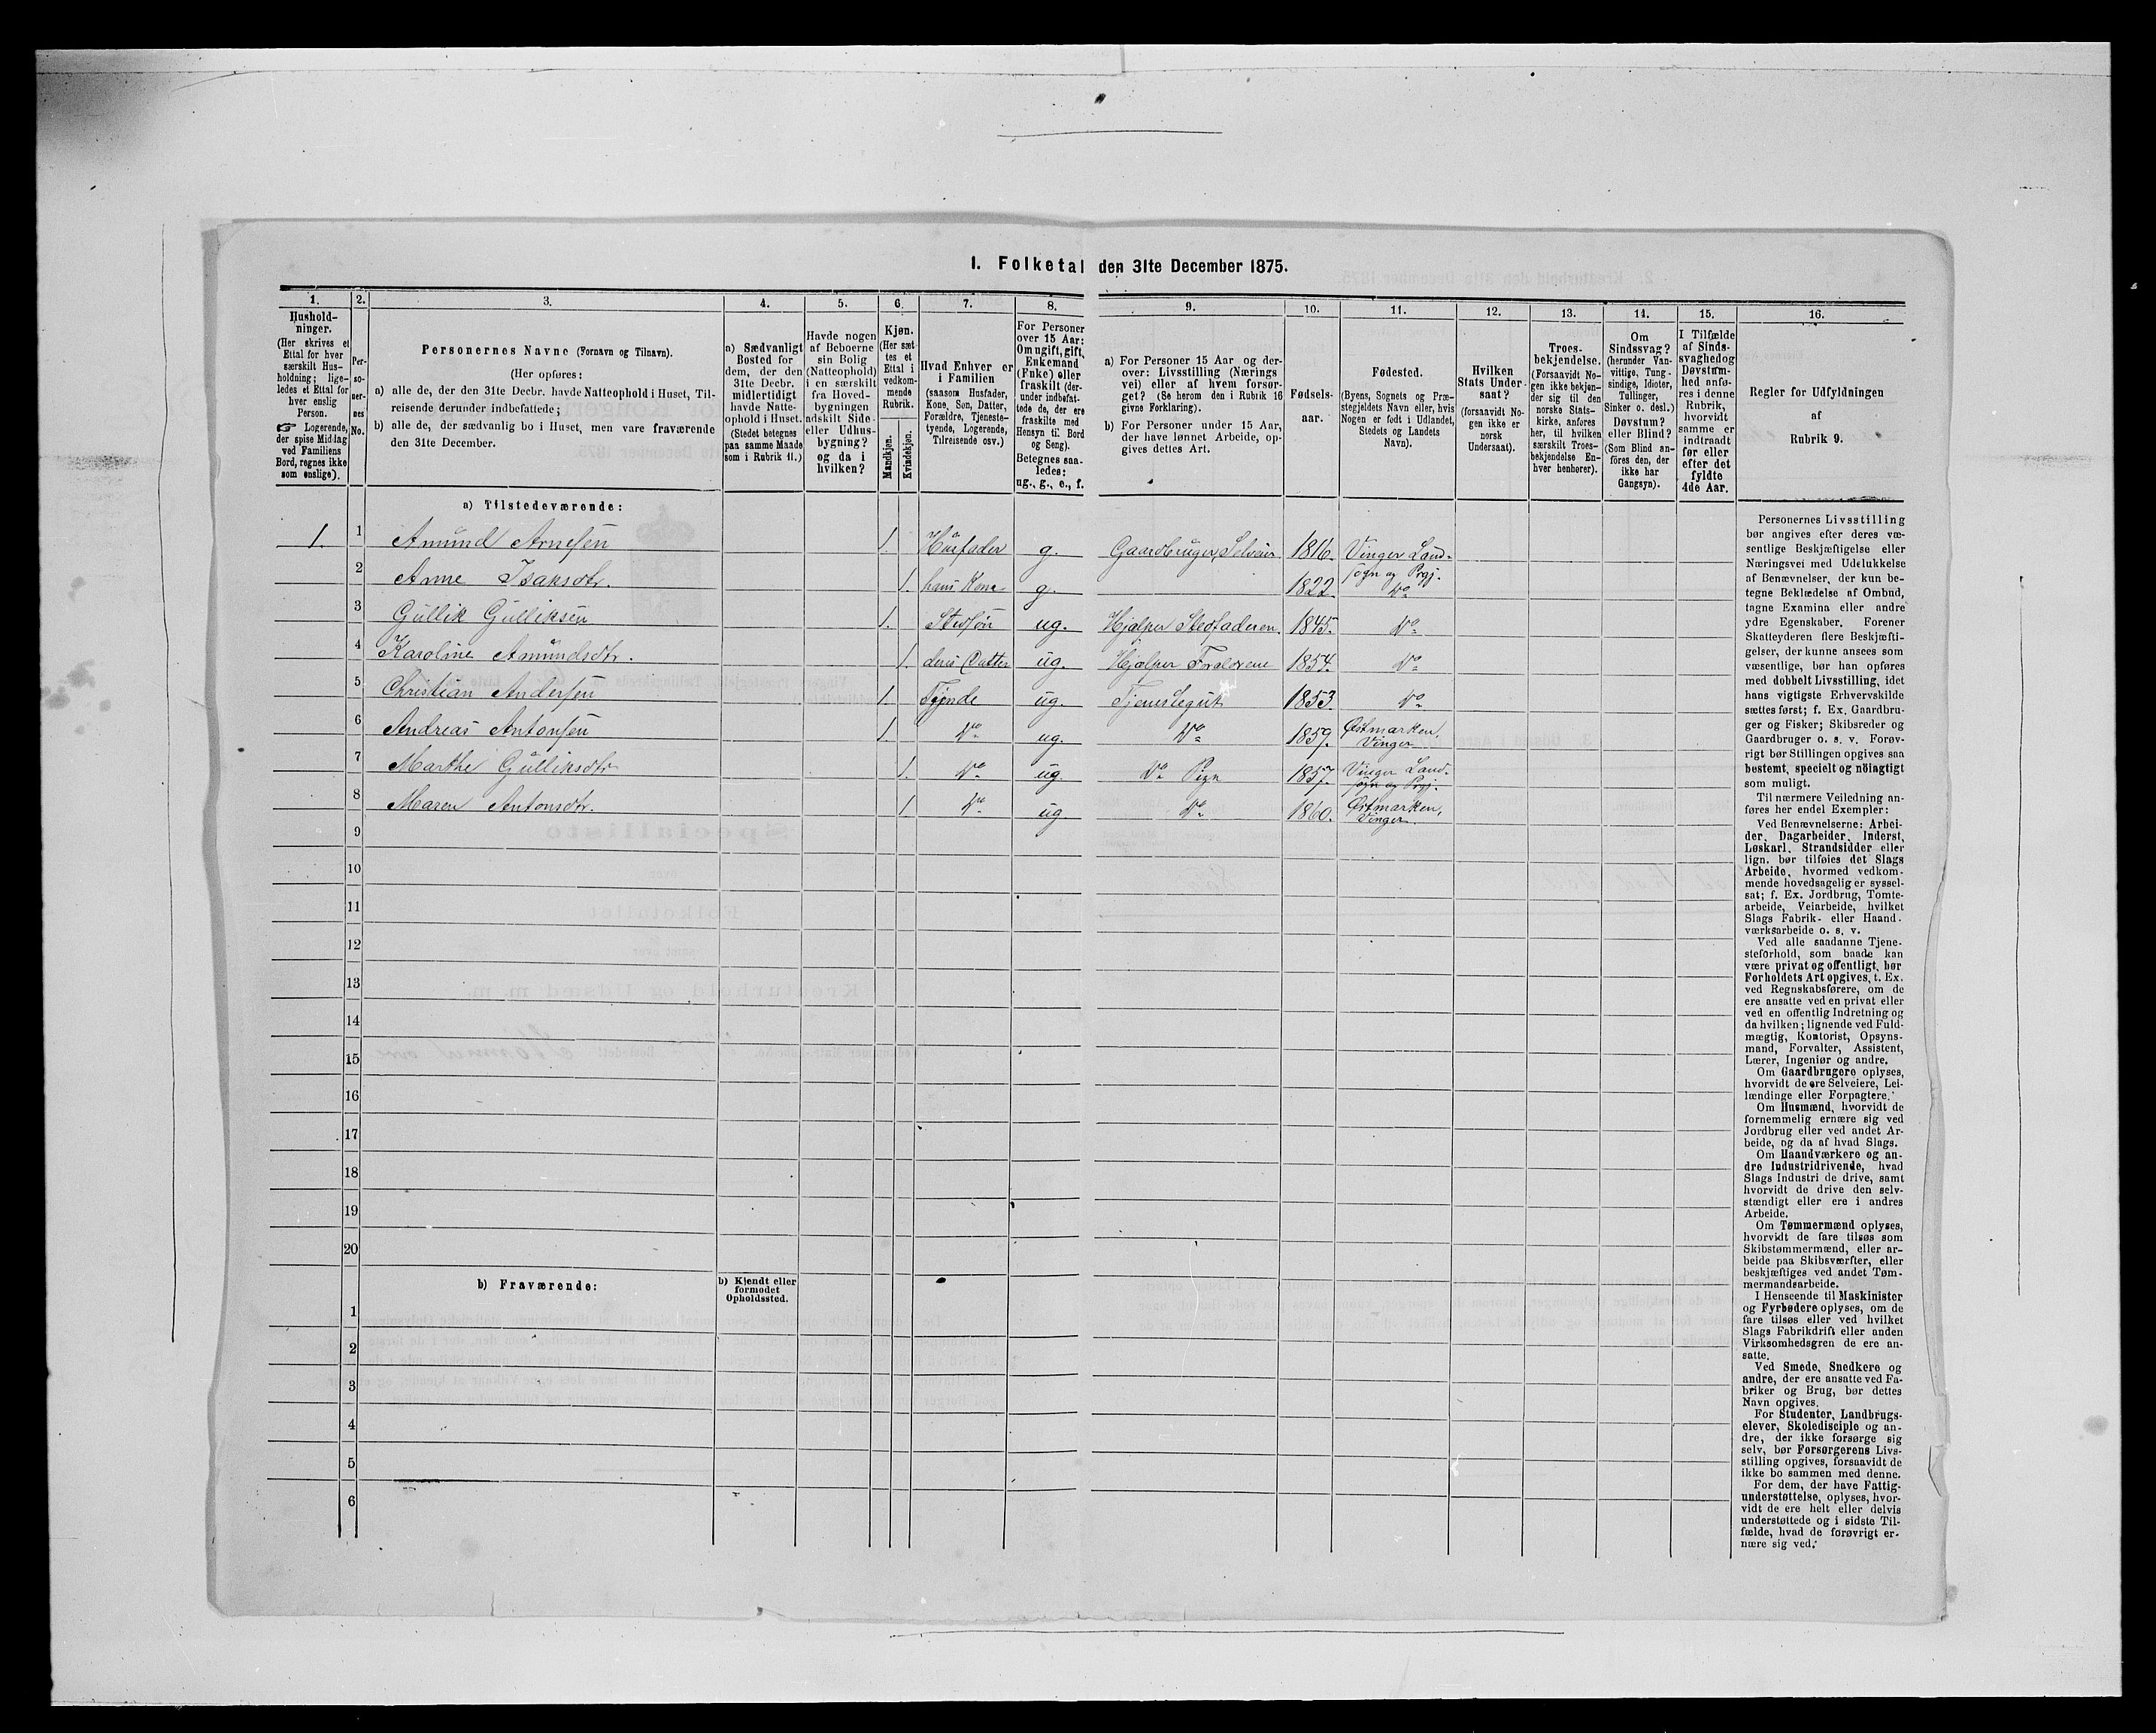 I. Folketal den 31te December 1875.
1. 2. 3. 4. 5. 6. 7. 8. 9. 10. 11. 12. 13. 14. 15. 16.
Hushold-
ninger.
(Her skrives et
Ettal for hver
særskilt Hus-
holdning; lige-
ledes et Ettal for
hver enslig
Person.
☞ Logerende,
der spise Middag
ved Familiens
Bord, regnes ikke
som enslige).
Per-
so-
ner-
nes
No.
Personernes Navne (Fornavn og Tilnavn).
(Her opføres:
a) alle de, der den 31te Decbr. havde Natteophold i Huset, Til-
reisende derunder indbefattede;
b) alle de, der sædvanlig bo i Huset, men vare fraværende
den 31te December.
a) Sædvanligt
Bosted for
dem, der den
31te Decbr.
midlertidigt
havde Natte-
ophold i Huset.
(Stedet betegnes
paa samme Maade
som i Rubrik 11.)
Havde nogen
af Beboerne
sin Bolig
(Natteophold)
i en særskilt
fra Hoved-
bygningen
adskilt Side-
eller Udhus-
bygning?
og da i
hvilken?
Kjøn.
(Her sæt-
tes et
Ettal i
vedkom-
mende
Rubrik.
Mandkjøn.
Kvindekjøn.
Hvad Enhver er
i Familien
(saasom Husfader,
Kone, Søn, Datter,
Forældre, Tjeneste-
tyende, Logerende,
Tilreisende osv.)
For Personer
over 15 Aar:
Om ugift, gift,
Enkemand
(Enke) eller
fraskilt (der-
under indbefat-
tede de, der ere
fraskilte med
Hensyn til Bord
og Seng).
Betegnes saa-
ledes:
ug., g., e., f.
a) For Personer 15 Aar og der-
over: Livsstilling (Nærings
vei) eller af hvem forsør-
get? (Se herom den i Rubrik 16
givne Forklaring).
b) For Personer under 15 Aar,
der have lønnet Arbeide, op-
gives dettes Art.
Fødsels-
aar.
Fødested.
(Byens, Sognets og Præ-
stegjeldets Navn eller, hvis
Nogen er født i Udlandet,
Stedets og Landets
Navn).
Hvilken
Stats Under-
saat?
(forsaavidt No-
gen ikke er
norsk
Undersaat).
Troes-
bekjendelse.
(Forsaavidt No-
gen ikke bekjen-
der sig til den
norske Stats-
kirke, anføres
her, til hvilken
særskilt Troes-
bekjendelse En-
hver henhører).
Om
Sindssvag?
(herunder Van-
vittige, Tung-
sindige, Idioter,
Tullinger,
Sinker o. desl.)
Døvstum?
eller Blind?
(Som Blind an-
føres den, der
ikke har
Gangsyn).
I Tilfælde
af Sinds-
svaghed og
Døvstum-
hed anfø-
res i denne
Rubrik,
hvorvidt
samme er
indtraadt
før eller
efter det
fyldte
4de Aar.
Regler for Udfyldningen
af
Rubrik 9.
a) Tilstedeværende:
1. 1 Amund Arnesen 1. Husfader g. Gaardbruger, Selveier 1816. Vinger Land-
sogn og Prgj.
2 Anne Isaksdtr. 1. hans Kone g. 1822. Do
3 Gullik Gulliksen 1. Stedsøn ug. Hjælper Stedfaderen. 1845. Do
4 Karoline Amundsdtr. 1. deres Datter ug. Hjælper Forældrene 1854. Do
5 Christian Andersen 1. Tyende ug. Tjenestegut 1853. Do
6 Andreas Antonsen 1. Do ug. Do 1859. Østmarken,
Vinger
7 Marthe Gulliksdtr 1. Do ug. Do Pige 1857. Vinger Land-
sogn og Prgj.
8 Maren Antonsdtr. 1. Do ug. Do 1860. Østmarken,
Vinger
9
10
11
12
13
14
15
16
17
18
19
20
b) Fraværende:
b) Kjendt eller
formodet
Opholdssted.
1
2
3
4
5
6
Personernes Livsstilling
bør angives efter deres væ-
sentlige Beskjæftigelse eller
Næringsvei med Udelukkelse
af Benævnelser, der kun be-
tegne Beklædelse af Ombud,
tagne Examina eller andre
ydre Egenskaber. Forener
Skatteyderen flere Beskjæfti-
gelser, der kunne ansees som
væsentlige, bør han opføres
med dobbelt Livsstilling, idet
hans vigtigste Erhvervskilde
sættes først; f. Ex. Gaardbru-
ger og Fisker; Skibsreder og
Gaardbruger o. s. v. Forøv-
rigt bør Stillingen opgives saa
bestemt, specielt og nöiagtigt
som muligt.
Til nærmere Veiledning an-
føres her endel Exempler:
Ved Benævnelserne: Arbei-
der, Dagarbeider, Inderst,
Løskarl, Strandsidder eller
lign. bør tilføies det Slags
Arbeide, hvormed vedkom-
mende hovedsagelig er syssel-
sat; f. Ex. Jordbrug, Tomte-
arbeide, Veiarbeide, hvilket
Slags Fabrik- eller Haand-
værksarbeide o. s. v.
Ved alle saadanne Tjene-
steforhold, som baade kan
være privat og offentligt, bør
Forholdets Art opgives, t. Ex.
ved Regnskabsførere, om de
ere ansatte ved en privat eller
ved en offentlig Indretning og
da hvilken; lignende ved Fuld-
mægtig, Kontorist, Opsyns-
mand, Forvalter, Assistent,
Lærer, Ingeniør og andre.
Om Gaardbrugere oplyses,
hvorvidt de ere Selveiere, Lei-
lændinge eller Forpagtere.
Om Husmænd, hvorvidt de
fornemmelig ernære sig ved
Jordbrug eller ved andet Ar-
beide, og da af hvad Slags.
Om Haandværkere og an-
dre Industridrivende, hvad
Slags Industri de drive, samt
hvorvidt de drive den selv-
stændigt eller ere i andres
Arbeide.
Om Tømmermænd oplyses,
hvorvidt de fare tilsøs som
Skibstømmermænd, eller ar-
beide paa Skibsværfter, eller
beskjæftiges ved andet Tøm-
mermandsarbeide.
I Henseende til Maskinister
og Fyrbødere oplyses, om de
fare tilsøs eller ved hvilket
Slags Fabrikdrift eller anden
Virksomhedsgren de ere an-
satte.
Ved Smede, Snedkere og
andre, der ere ansatte ved Fa-
briker og Brug, bør dettes
Navn opgives.
For Studenter, Landbrugs-
elever, Skoledisciple og an-
dre, der ikke forsørge sig
selv, bør Forsørgerens Livs-
stilling opgives, forsaavidt de
ikke bo sammen med denne.
For dem, der have Fattig-
understøttelse, oplyses, hvor-
vidt de ere helt eller delvis
understøttede og i sidste Til-
fælde, hvad de forøvrigt er-
nære sig ved.